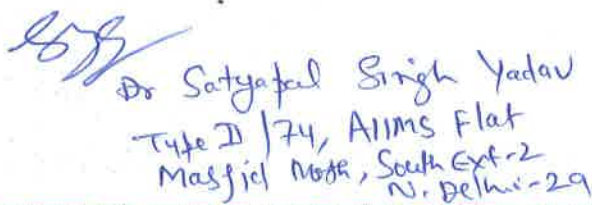 Dr Satyapal Singh Yadav
Type D /74, AIIMS Flat
Masjid Moth, South Ext-2
N. Delhi-29